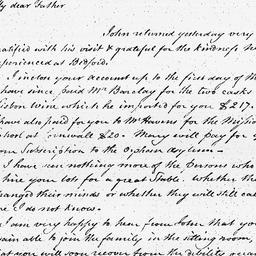 My dear Father
John returned yesterday very
gratified with his visit & grateful for the kindness he
experienced at Bedford.
I inclose your account up to the first day of
I have since paid Mr Barclay for the two casks
Lisbon wine which he imported for you $217.
I have also paid for you to Mr Havens for the Mission
School at Cornwall $20. Mary will pay for
Subscription to the Orphan asylum.
I have seen nothing more of the Persons who
hire your lots for a great Stable. Whether they
changed their minds or whether they will still call
me I do not know.
I am very happy to hear from John that you
again able to join the family in the sitting room,
that you will soon recover from the debility